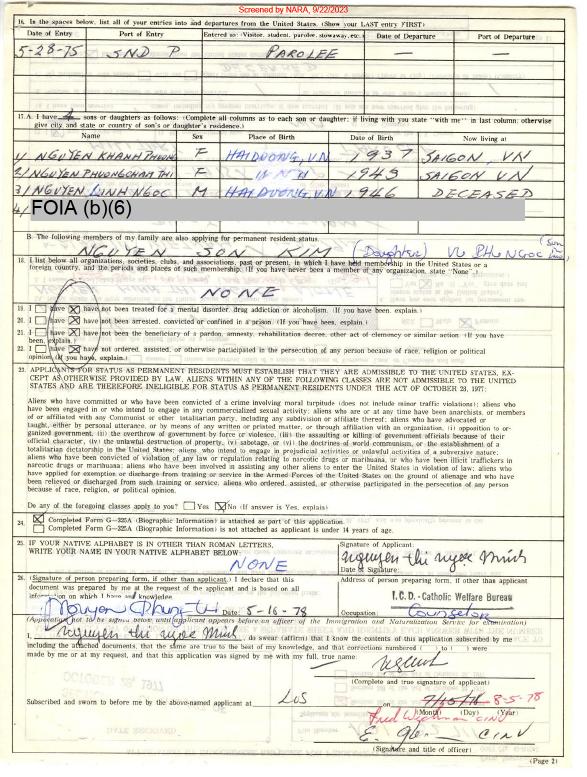 Screened by NARA, 9/22/2023
16. In the spaces below, list all of your entries into and departures from the United States. (Show your LAST entry FIRST)
Date of Entry Port of Entry Entered as: (Visitor, student, parolee, stowaway, etc.) Date of Departure Port of Departure
5-28-75 SND P PAROLEE — —
17.A. I have 4 sons or daughters as follows: (Complete all columns as to each son or daughter; if living with you state "with me" in last column; otherwise
give city and state or country of son's or daughter's residence.)
Name Sex Place of Birth Date of Birth Now living at
1/ NGUYEN KHANH PHUONG F HAIDUONG, VN 1937 SAIGON, VN
2/ NGUYEN PHUONGCHAM THI F 1943 SAIGON VN
3/ NGUYEN LINH NGOC M HAIDUONG, VN 1946 DECEASED
4/ FOIA (b)(6)
B. The following members of my family are also applying for permanent resident status.
NGUYEN SON KIM (Daughter) VU PHU NGOC (Son in law)
18. I list below all organizations, societies, clubs, and associations, past or present, in which I have held membership in the United States or a
foreign country, and the periods and places of such membership. (If you have never been a member of any organization, state "None".)
NONE
19. I have X have not been treated for a mental disorder, drug addiction or alcoholism. (If you have been, explain.)
20. I have X have not been arrested, convicted or confined in a prison. (If you have been, explain.)
21. I have X have not been the beneficiary of a pardon, amnesty, rehabilitation decree, other act of clemency or similar action. (If you have
been, explain.)
22. I have X have not ordered, assisted, or otherwise participated in the persecution of any person because of race, religion or political
opinion. (If you have, explain.)
23. APPLICANTS FOR STATUS AS PERMANENT RESIDENTS MUST ESTABLISH THAT THEY ARE ADMISSIBLE TO THE UNITED STATES, EX-
CEPT AS OTHERWISE PROVIDED BY LAW, ALIENS WITHIN ANY OF THE FOLLOWING CLASSES ARE NOT ADMISSIBLE TO THE UNITED
STATES AND ARE THEREFORE INELIGIBLE FOR STATUS AS PERMANENT RESIDENTS UNDER THE ACT OF OCTOBER 28, 1977:
Aliens who have committed or who have been convicted of a crime involving moral turpitude (does not include minor traffic violations); aliens who
have been engaged in or who intend to engage in any commercialized sexual activity; aliens who are or at any time have been anarchists, or members
of or affiliated with any Communist or other totalitarian party, including any subdivision or affiliate thereof; aliens who have advocated or
taught, either by personal utterance, or by means of any written or printed matter, or through affiliation with an organization, (i) opposition to or-
ganized government, (ii) the overthrow of government by force or violence, (iii) the assaulting or killing of government officials because of their
official character, (iv) the unlawful destruction of property, (v) sabotage, or (vi) the doctrines of world communism, or the establishment of a
totalitarian dictatorship in the United States; aliens who intend to engage in prejudicial activities or unlawful activities of a subversive nature;
aliens who have been convicted of violation of any law or regulation relating to narcotic drugs or marihuana, or who have been illicit traffickers in
narcotic drugs or marihuana; aliens who have been involved in assisting any other aliens to enter the United States in violation of law; aliens who
have applied for exemption or discharge from training or service in the Armed Forces of the United States on the ground of alienage and who have
been relieved or discharged from such training or service, aliens who ordered, assisted, or otherwise participated in the persecution of any person
because of race, religion, or political opinion.
Do any of the foregoing classes apply to you? Yes X No (If answer is Yes, explain)
24. X Completed Form G-325A (Biographic Information) is attached as part of this application.
Completed Form G-325A (Biographic Information) is not attached as applicant is under 14 years of age.
25. IF YOUR NATIVE ALPHABET IS IN OTHER THAN ROMAN LETTERS,
WRITE YOUR NAME IN YOUR NATIVE ALPHABET BELOW:
NONE
Signature of Applicant:
nguyen thi ngoc Minh
Date of Signature:
26. (Signature of person preparing form, if other than applicant.) I declare that this
document was prepared by me at the request of the applicant and is based on all
information on which I have any knowledge.
Date: 5-16-78
Address of person preparing form, if other than applicant
I.C.D. - Catholic Welfare Bureau
Occupation: Counselor
(Application not to be signed below until applicant appears before an officer of the Immigration and Naturalization Service for examination)
I, nguyen thi ngoc Minh, do swear (affirm) that I know the contents of this application subscribed by me
including the attached documents, that the same are true to the best of my knowledge, and that corrections numbered ( ) to ( ) were
made by me or at my request, and that this application was signed by me with my full, true name:
(Complete and true signature of applicant)
Subscribed and sworn to before me by the above-named applicant at LOS on 8-5-78
(Month) (Day) (Year)
(Signature and title of officer)
(Page 2)